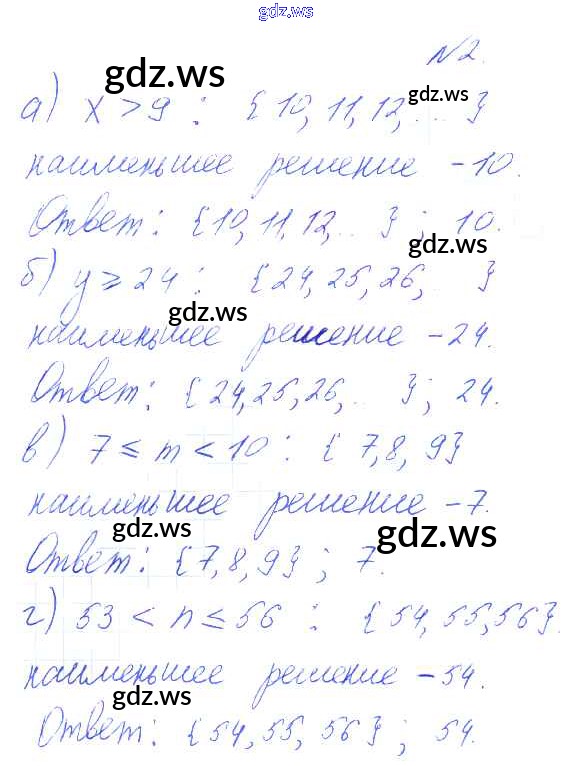 gdz.ws
№2.
gdz.ws
gdz.ws
а) x > 9 : {10, 11, 12, ... }
наименьшее решение – 10.
Ответ: {10, 11, 12, .. } ; 10.
gdz.ws
б) y ⩾ 24 : {24, 25, 26, .. }
gdz.ws
наименьшее решение – 24.
Ответ: {24, 25, 26, .. } ; 24.
в) 7 ≤ m < 10 : {7, 8, 9}
наименьшее решение – 7.
gdz.ws
gdz.ws
Ответ: {7, 8, 9} ; 7.
г) 53 < n ≤ 56 : {54, 55, 56}.
наименьшее решение – 54.
gdz.ws
Ответ: {54, 55, 56} ; 54.
gdz.ws